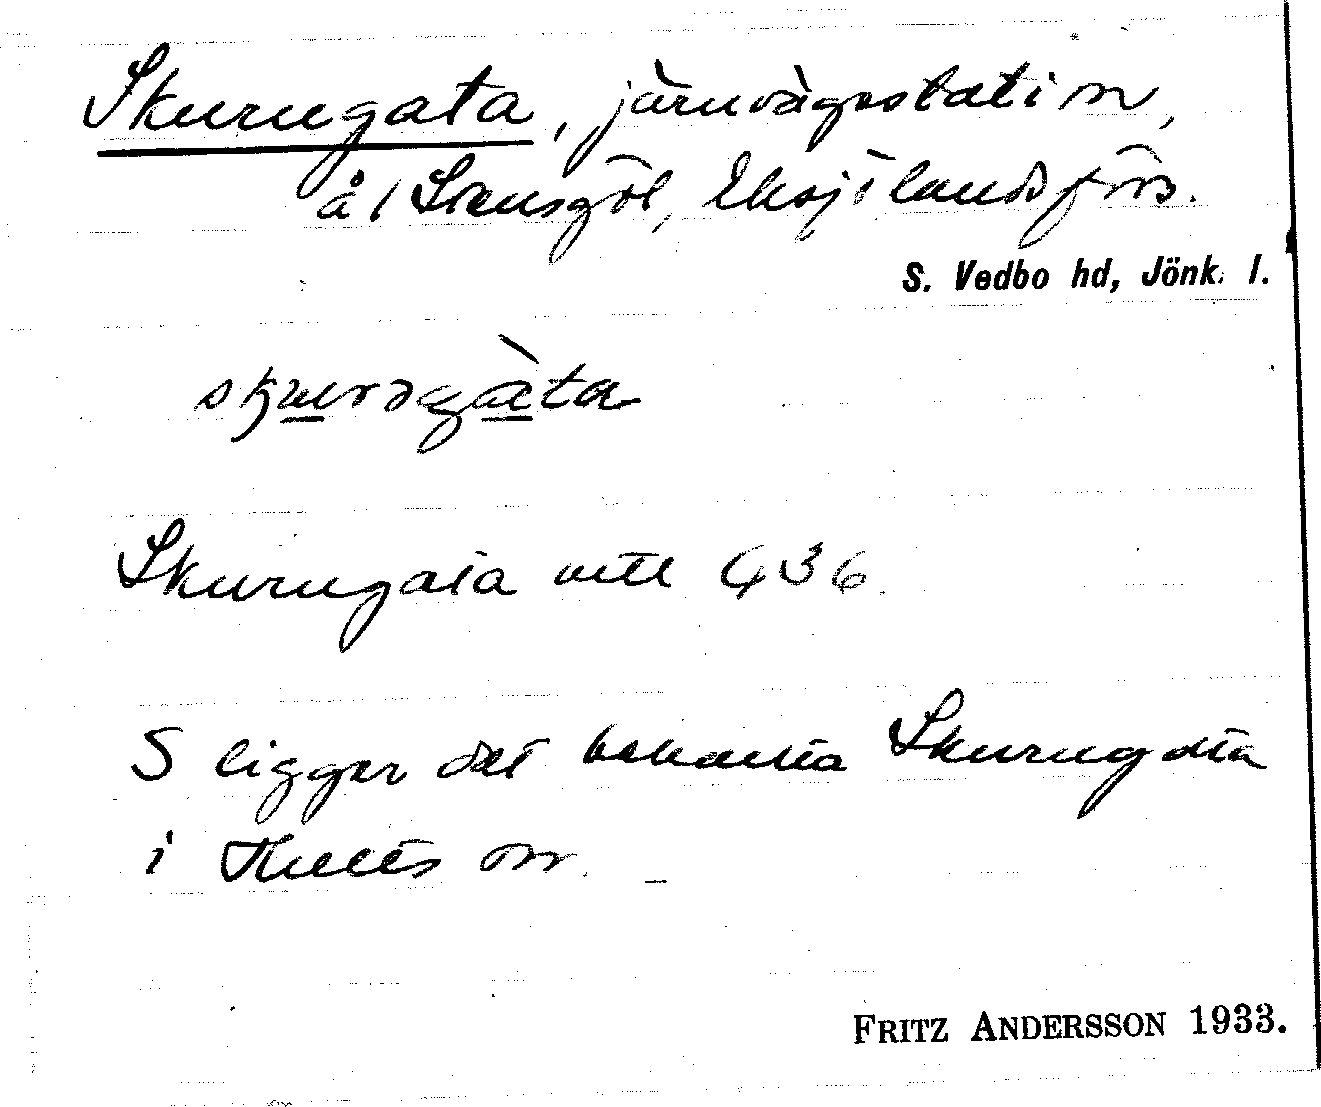 Skurugata, järnvägsstation,
å 1 Stensgöl, Eksjö landsförs.
S. Vedbo hd, Jönk. l.
Skurugata vttl 436.
S ligger det bekanta Skurugata
i Hults sn.
FRITZ ANDERSSON 1933.